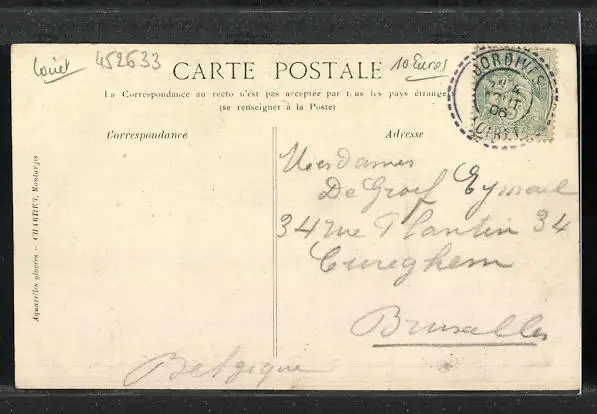 Loiret
452633
10 Euros
CARTE POSTALE
La Correspondance au recto n'est pas acceptée par tous les pays étrangers
(se renseigner à la Poste)
Correspondance
Adresse
Mesdames
De Groef Eymael
34 rue Plantin 34
Cureghem
Bruxelles
Belgique
Aquarelles glacées - CHARTIET, Montargis
LOIRET